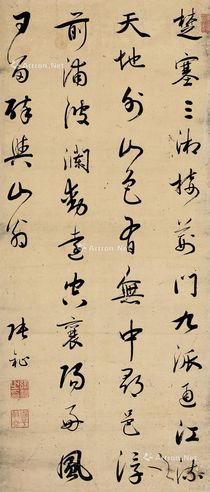 楚塞三湘接荊門九派通江流
天地外山色有無中郡邑浮
前浦波瀾動遠空襄陽好風
日留醉與山翁
張祉